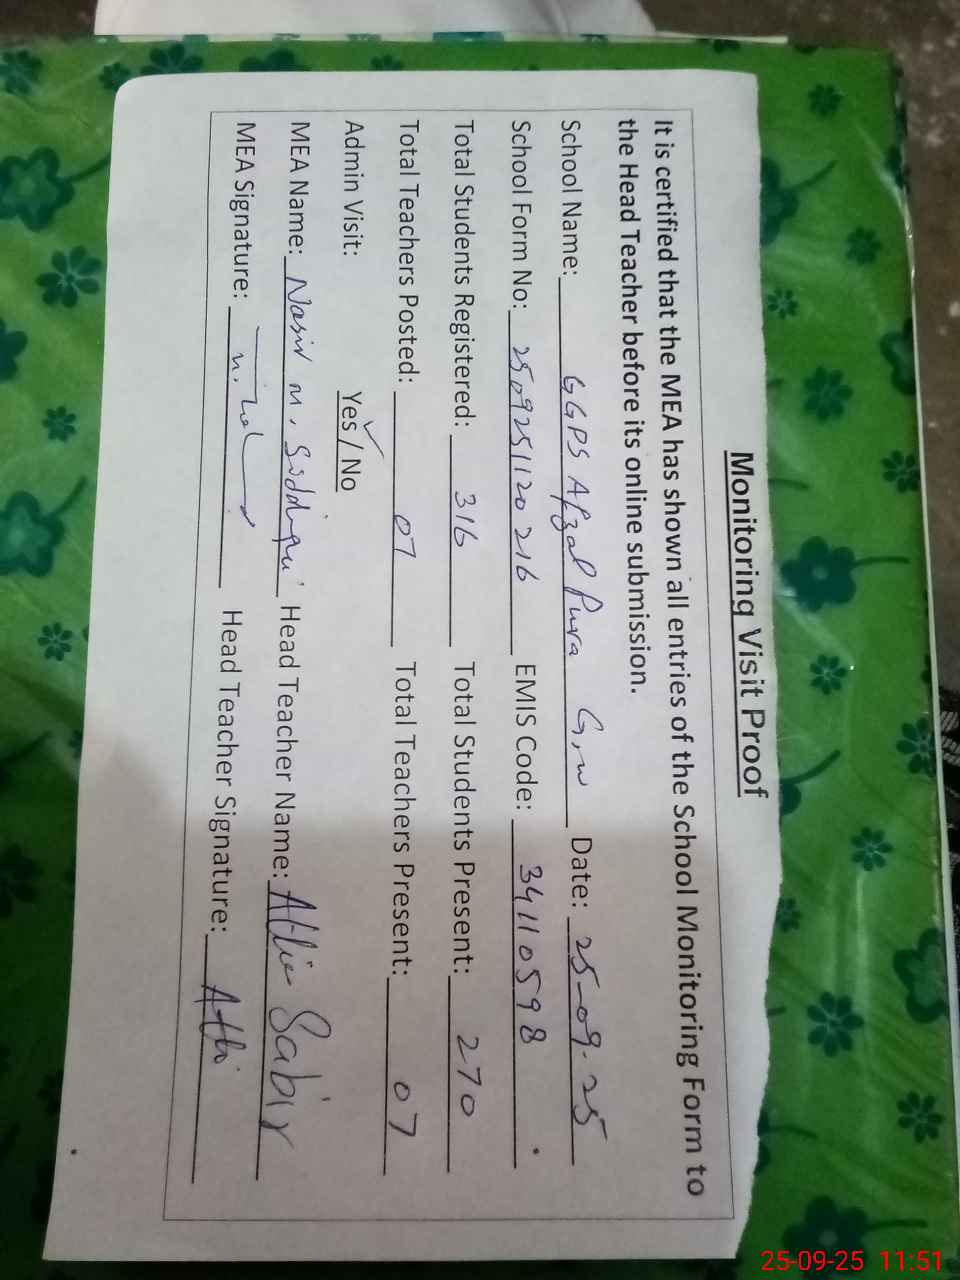 Monitoring Visit Proof
It is certified that the MEA has shown all entries of the School Monitoring Form to
the Head Teacher before its online submission.
School Name: GGPS Afzal Pura G,w Date: 25-09-25
School Form No: 2509251120216 EMIS Code: 34110598
Total Students Registered: 316 Total Students Present: 270
Total Teachers Posted: 07 Total Teachers Present: 07
Admin Visit: Yes / No
MEA Name: Nasir M. Siddiqui Head Teacher Name: Sabir
MEA Signature: Head Teacher Signature:
25-09-25 11:51